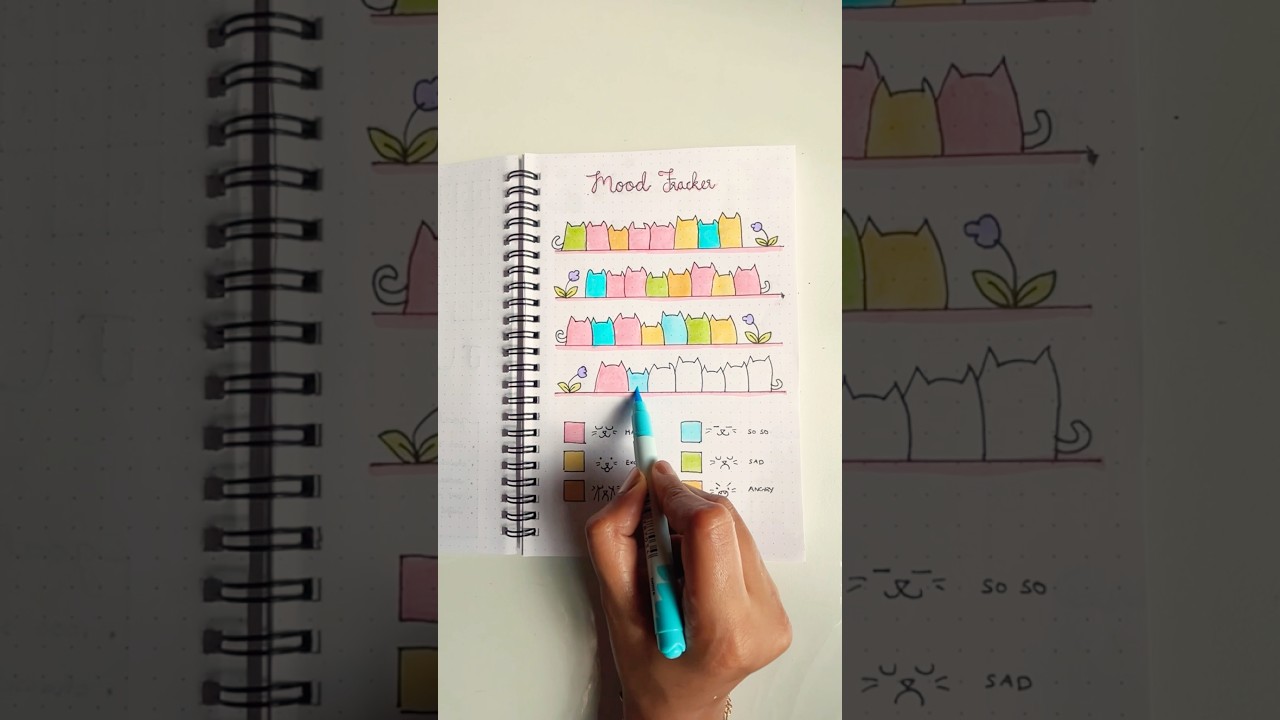 Mood Tracker
SO SO
SAD
ANGRY
SO SO
SAD